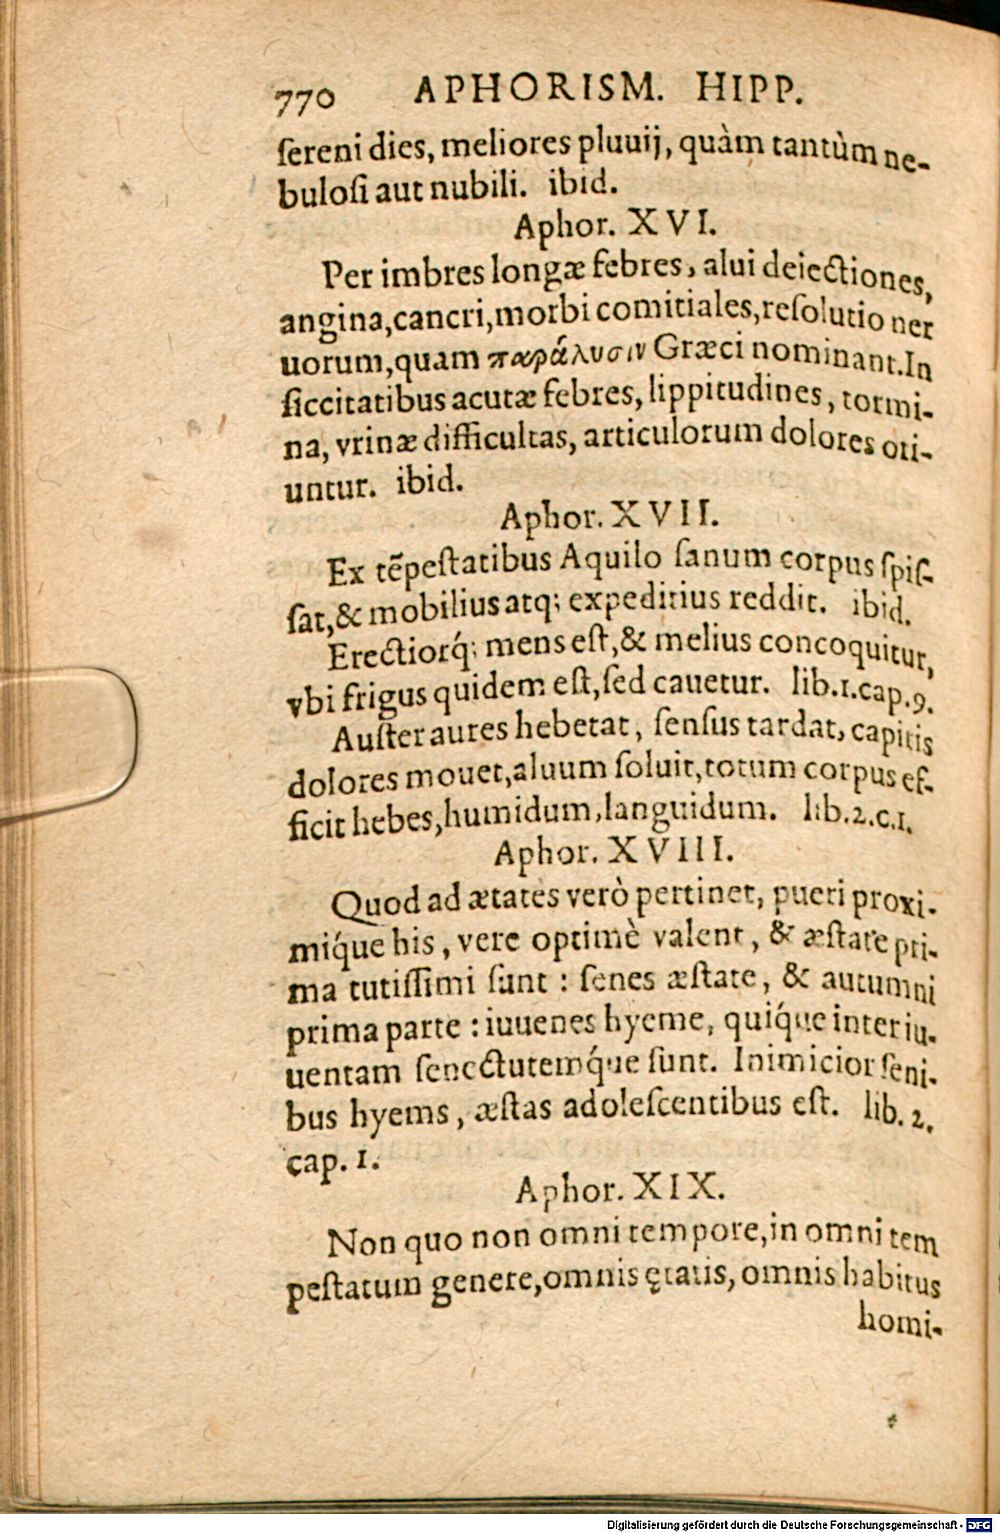 770 APHORISM. HIPP.
ſereni dies, meliores pluuij, quàm tantùm ne-
buloſi aut nubili. ibid.
Aphor. XVI.
Per imbres longæ febres, alui deiectiones,
angina,cancri,morbi comitiales,reſolutio ner
uorum,quam παράλυσιν Græci nominant.In
ſiccitatibus acutæ febres, lippitudines, tormi-
na, vrinæ difficultas, articulorum dolores ori-
untur. ibid.
Aphor. XVII.
Ex tẽpeſtatibus Aquilo ſanum corpus ſpiſ-
ſat,& mobilius atq; expeditius reddit. ibid.
Erectiorq́; mens eſt,& melius concoquitur,
vbi frigus quidem eſt,ſed cauetur. lib.1.cap.9.
Auſter aures hebetat, ſenſus tardat, capitis
dolores mouet,aluum ſoluit,totum corpus ef-
ficit hebes,humidum,languidum. lib.2.c.1.
Aphor. XVIII.
Quod ad ætates verò pertinet, pueri proxi-
miq́ue his, vere optimè valent, & æſtate pri-
ma tutiſſimi ſunt : ſenes æſtate, & autumni
prima parte : iuuenes hyeme, quiq́ue inter iu-
uentam ſenectutemq́ue ſunt. Inimicior ſeni-
bus hyems, æſtas adoleſcentibus eſt. lib. 2.
cap. 1.
Aphor. XIX.
Non quo non omni tempore,in omni tem
peſtatum genere,omnis ętatis, omnis habitus
homi-
Digitalisierung gefördert durch die Deutsche Forschungsgemeinschaft - DFG